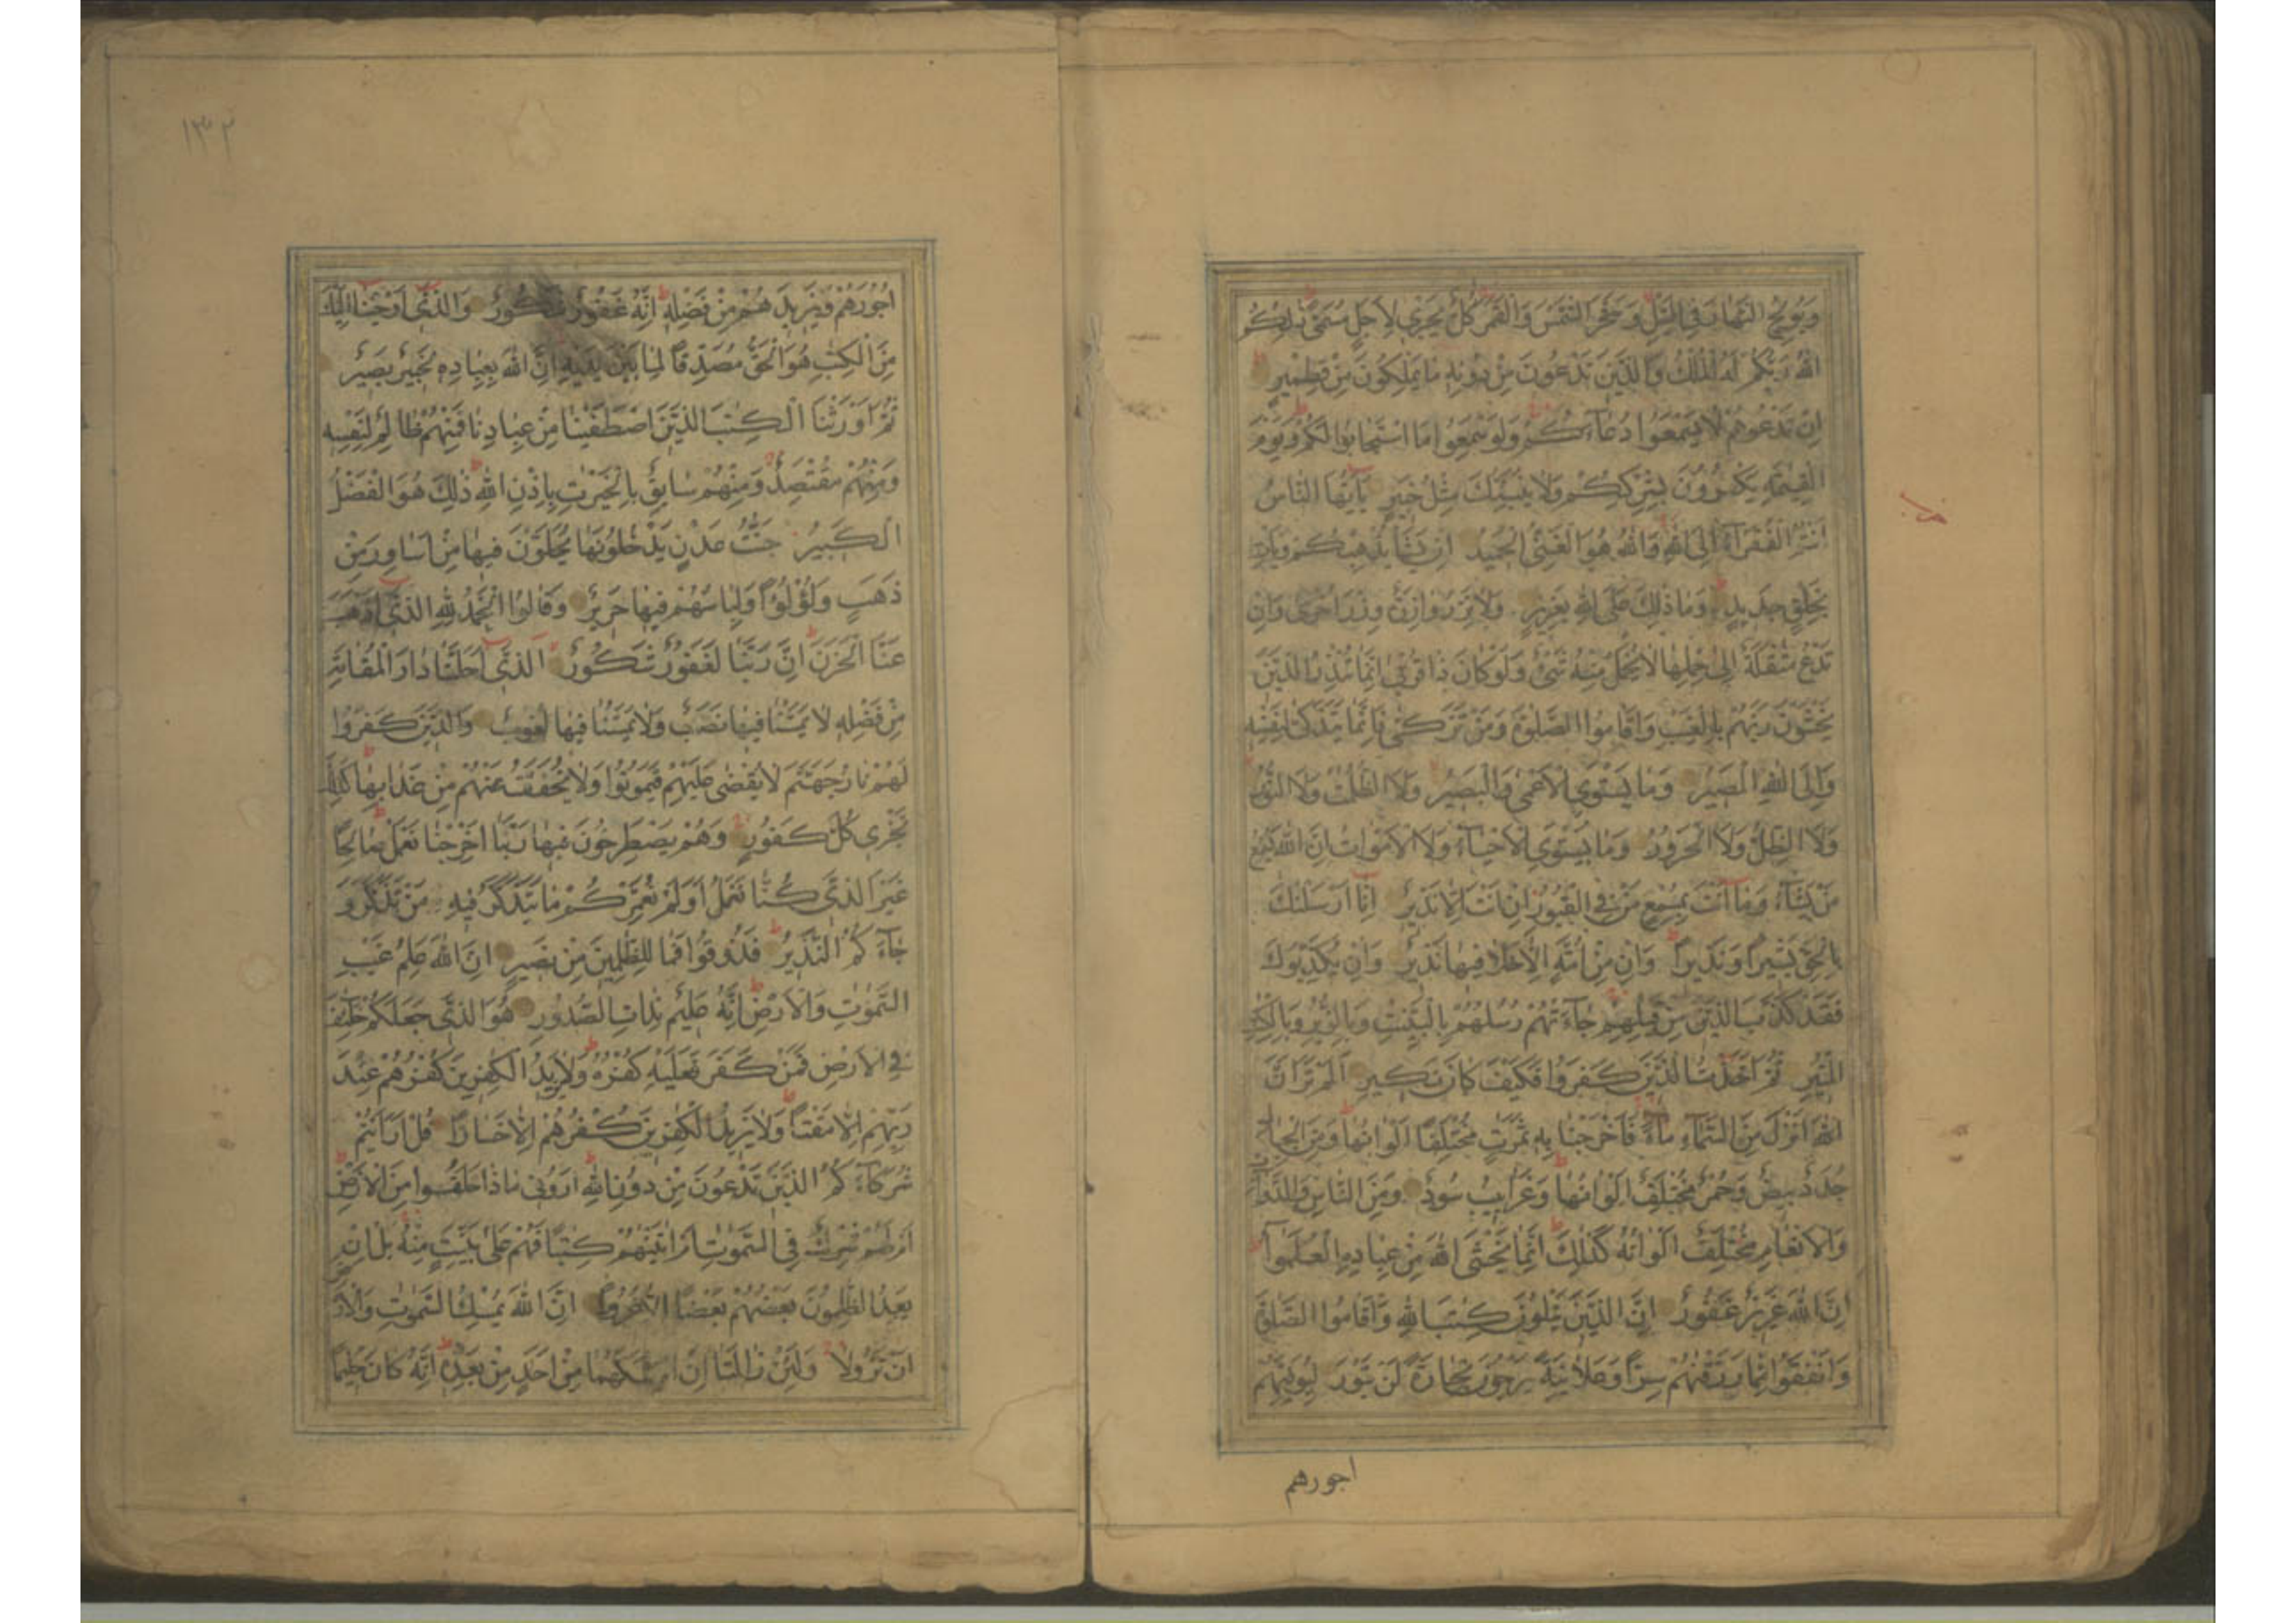 وَيُولِجُ النَّهَارَ فِي اللَّيْلِ وَسَخَّرَ الشَّمْسَ وَالْقَمَرَ كُلٌّ يَجْرِي لِأَجَلٍ مُسَمًّى ذَلِكُمُ
اللَّهُ رَبُّكُمْ لَهُ الْمُلْكُ وَالَّذِينَ تَدْعُونَ مِنْ دُونِهِ مَا يَمْلِكُونَ مِنْ قِطْمِيرٍ
إِنْ تَدْعُوهُمْ لَا يَسْمَعُوا دُعَاءَكُمْ وَلَوْ سَمِعُوا مَا اسْتَجَابُوا لَكُمْ وَيَوْمَ
الْقِيٰمَةِ يَكْفُرُونَ بِشِرْكِكُمْ وَلَا يُنَبِّئُكَ مِثْلُ خَبِيرٍ يَا أَيُّهَا النَّاسُ
أَنْتُمُ الْفُقَرَاءُ إِلَى اللَّهِ وَاللَّهُ هُوَ الْغَنِيُّ الْحَمِيدُ إِنْ يَشَأْ يُذْهِبْكُمْ وَيَأْتِ
بِخَلْقٍ جَدِيدٍ وَمَا ذَلِكَ عَلَى اللَّهِ بِعَزِيزٍ وَلَا تَزِرُ وَازِرَةٌ وِزْرَ أُخْرَى وَإِنْ
تَدْعُ مُثْقَلَةٌ إِلَى حِمْلِهَا لَا يُحْمَلْ مِنْهُ شَيْءٌ وَلَوْ كَانَ ذَا قُرْبَى إِنَّمَا تُنْذِرُ الَّذِينَ
يَخْشَوْنَ رَبَّهُمْ بِالْغَيْبِ وَأَقَامُوا الصَّلٰوةَ وَمَنْ تَزَكَّى فَإِنَّمَا يَتَزَكَّى لِنَفْسِهِ
وَإِلَى اللَّهِ الْمَصِيرُ وَمَا يَسْتَوِي الْأَعْمَى وَالْبَصِيرُ وَلَا الظُّلُمٰتُ وَلَا النُّورُ
وَلَا الظِّلُّ وَلَا الْحَرُورُ وَمَا يَسْتَوِي الْأَحْيَاءُ وَلَا الْأَمْوَاتُ إِنَّ اللَّهَ يُسْمِعُ
مَنْ يَشَاءُ وَمَا أَنْتَ بِمُسْمِعٍ مَنْ فِي الْقُبُورِ إِنْ أَنْتَ إِلَّا نَذِيرٌ إِنَّا أَرْسَلْنٰكَ
بِالْحَقِّ بَشِيرًا وَنَذِيرًا وَإِنْ مِنْ أُمَّةٍ إِلَّا خَلَا فِيهَا نَذِيرٌ وَإِنْ يُكَذِّبُوكَ
فَقَدْ كَذَّبَ الَّذِينَ مِنْ قَبْلِهِمْ جَاءَتْهُمْ رُسُلُهُمْ بِالْبَيِّنٰتِ وَبِالزُّبُرِ وَبِالْكِتٰبِ
الْمُنِيرِ ثُمَّ أَخَذْتُ الَّذِينَ كَفَرُوا فَكَيْفَ كَانَ نَكِيرِ أَلَمْ تَرَ أَنَّ
اللَّهَ أَنْزَلَ مِنَ السَّمَاءِ مَاءً فَأَخْرَجْنَا بِهِ ثَمَرٰتٍ مُخْتَلِفًا أَلْوَانُهَا وَمِنَ الْجِبَالِ
جُدَدٌ بِيضٌ وَحُمْرٌ مُخْتَلِفٌ أَلْوَانُهَا وَغَرَابِيبُ سُودٌ وَمِنَ النَّاسِ وَالدَّوَابِّ
وَالْأَنْعَامِ مُخْتَلِفٌ أَلْوَانُهُ كَذَلِكَ إِنَّمَا يَخْشَى اللَّهَ مِنْ عِبَادِهِ الْعُلَمٰؤُا
إِنَّ اللَّهَ عَزِيزٌ غَفُورٌ إِنَّ الَّذِينَ يَتْلُونَ كِتٰبَ اللَّهِ وَأَقَامُوا الصَّلٰوةَ
وَأَنْفَقُوا مِمَّا رَزَقْنٰهُمْ سِرًّا وَعَلَانِيَةً يَرْجُونَ تِجَارَةً لَنْ تَبُورَ لِيُوَفِّيَهُمْ
اجورهم
١٣٢
أُجُورَهُمْ وَيَزِيدَهُمْ مِنْ فَضْلِهِ إِنَّهُ غَفُورٌ شَكُورٌ وَالَّذِي أَوْحَيْنَا إِلَيْكَ
مِنَ الْكِتٰبِ هُوَ الْحَقُّ مُصَدِّقًا لِمَا بَيْنَ يَدَيْهِ إِنَّ اللَّهَ بِعِبَادِهِ لَخَبِيرٌ بَصِيرٌ
ثُمَّ أَوْرَثْنَا الْكِتٰبَ الَّذِينَ اصْطَفَيْنَا مِنْ عِبَادِنَا فَمِنْهُمْ ظَالِمٌ لِنَفْسِهِ
وَمِنْهُمْ مُقْتَصِدٌ وَمِنْهُمْ سَابِقٌ بِالْخَيْرٰتِ بِإِذْنِ اللَّهِ ذَلِكَ هُوَ الْفَضْلُ
الْكَبِيرُ جَنّٰتُ عَدْنٍ يَدْخُلُونَهَا يُحَلَّوْنَ فِيهَا مِنْ أَسَاوِرَ مِنْ
ذَهَبٍ وَلُؤْلُؤًا وَلِبَاسُهُمْ فِيهَا حَرِيرٌ وَقَالُوا الْحَمْدُ لِلَّهِ الَّذِي أَذْهَبَ
عَنَّا الْحَزَنَ إِنَّ رَبَّنَا لَغَفُورٌ شَكُورٌ الَّذِي أَحَلَّنَا دَارَ الْمُقَامَةِ
مِنْ فَضْلِهِ لَا يَمَسُّنَا فِيهَا نَصَبٌ وَلَا يَمَسُّنَا فِيهَا لُغُوبٌ وَالَّذِينَ كَفَرُوا
لَهُمْ نَارُ جَهَنَّمَ لَا يُقْضَى عَلَيْهِمْ فَيَمُوتُوا وَلَا يُخَفَّفُ عَنْهُمْ مِنْ عَذَابِهَا كَذَلِكَ
نَجْزِي كُلَّ كَفُورٍ وَهُمْ يَصْطَرِخُونَ فِيهَا رَبَّنَا أَخْرِجْنَا نَعْمَلْ صَالِحًا
غَيْرَ الَّذِي كُنَّا نَعْمَلُ أَوَلَمْ نُعَمِّرْكُمْ مَا يَتَذَكَّرُ فِيهِ مَنْ تَذَكَّرَ وَ
جَاءَكُمُ النَّذِيرُ فَذُوقُوا فَمَا لِلظّٰلِمِينَ مِنْ نَصِيرٍ إِنَّ اللَّهَ عٰلِمُ غَيْبِ
السَّمٰوٰتِ وَالْأَرْضِ إِنَّهُ عَلِيمٌ بِذَاتِ الصُّدُورِ هُوَ الَّذِي جَعَلَكُمْ خَلٰئِفَ
فِي الْأَرْضِ فَمَنْ كَفَرَ فَعَلَيْهِ كُفْرُهُ وَلَا يَزِيدُ الْكٰفِرِينَ كُفْرُهُمْ عِنْدَ
رَبِّهِمْ إِلَّا مَقْتًا وَلَا يَزِيدُ الْكٰفِرِينَ كُفْرُهُمْ إِلَّا خَسَارًا قُلْ أَرَأَيْتُمْ
شُرَكَاءَكُمُ الَّذِينَ تَدْعُونَ مِنْ دُونِ اللَّهِ أَرُونِي مَاذَا خَلَقُوا مِنَ الْأَرْضِ
أَمْ لَهُمْ شِرْكٌ فِي السَّمٰوٰتِ أَمْ آتَيْنٰهُمْ كِتٰبًا فَهُمْ عَلَى بَيِّنَتٍ مِنْهُ بَلْ إِنْ
يَعِدُ الظّٰلِمُونَ بَعْضُهُمْ بَعْضًا إِلَّا غُرُورًا إِنَّ اللَّهَ يُمْسِكُ السَّمٰوٰتِ وَالْأَرْضَ
أَنْ تَزُولَا وَلَئِنْ زَالَتَا إِنْ أَمْسَكَهُمَا مِنْ أَحَدٍ مِنْ بَعْدِهِ إِنَّهُ كَانَ حَلِيمًا